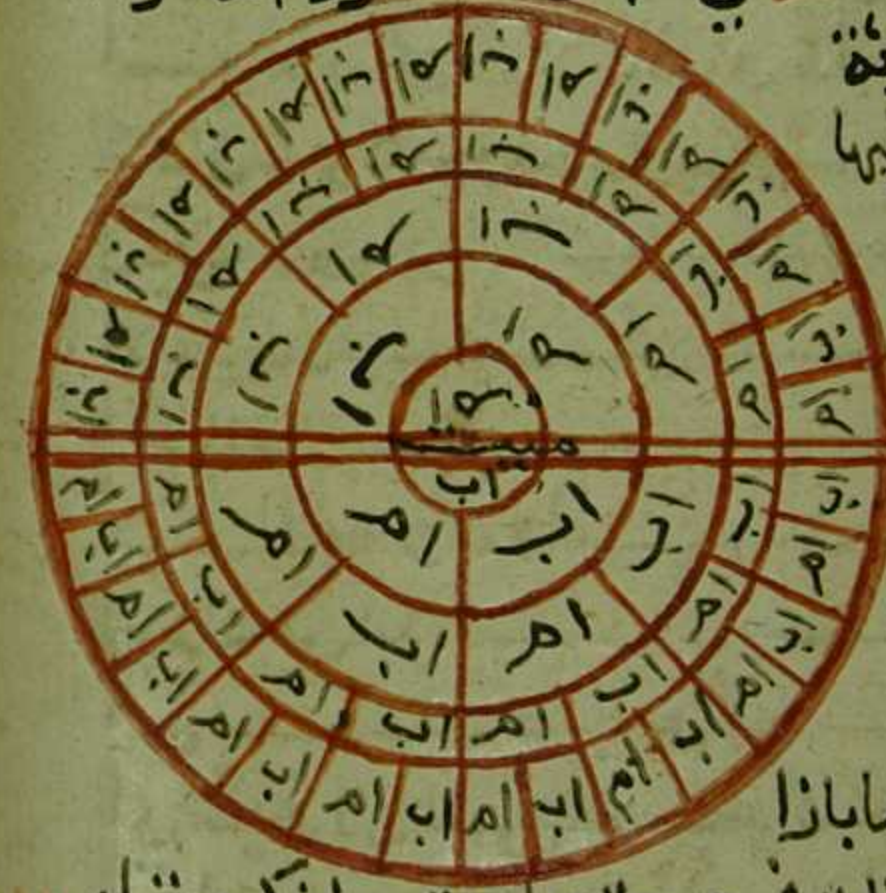 ام اب ام اب ام اب ام اب ام اب ام اب ام اب ام اب
ام اب ام اب ام اب ام اب
ام اب ام اب
ام اب
ام
ميت
اب
اب ام
اب ام اب ام
اب ام اب ام اب ام اب ام
اب ام اب ام اب ام اب ام اب ام اب ام اب ام اب ام